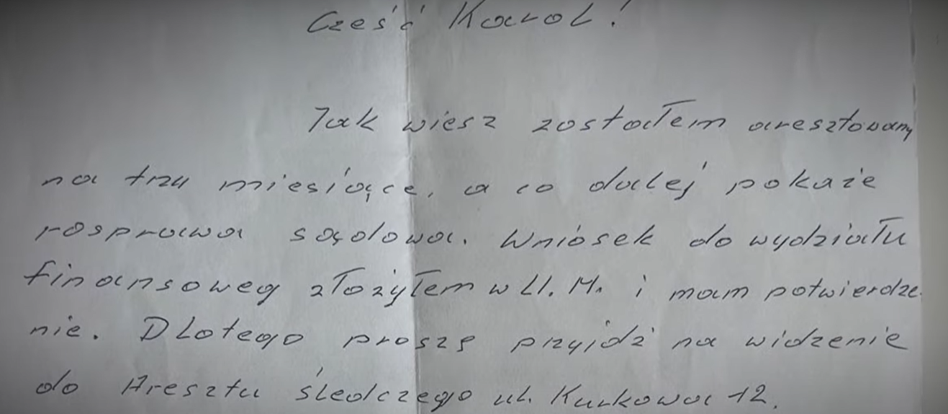 Cześć Karol!
Jak wiesz zostałem aresztowany
na trzy miesiące, a co dalej pokaże
rosprawa sądowa. Wniosek do wydziału
finansoweg złożyłem w U.M. i mam potwierdze
nie. Dlatego proszę przyjdź na widzenie
do Aresztu śledczego ul. Kurkowa 12.